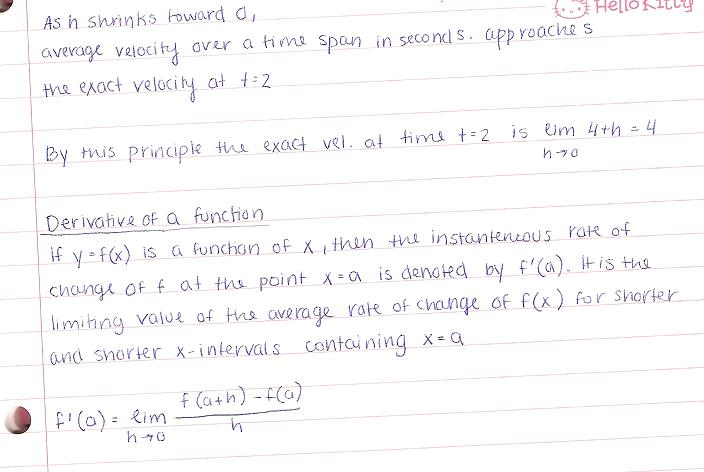 Hello Kitty
As h shrinks toward 0,
average velocity over a time span in seconds. approaches
the exact velocity at t=2
By this principle the exact vel. at time t=2 is lim 4+h = 4
h→0
Derivative of a function
if y=f(x) is a function of x, then the instanteneous rate of
change of f at the point x=a is denoted by f'(a). It is the
limiting value of the average rate of change of f(x) for shorter
and shorter x-intervals containing x=a
f'(a) = lim f(a+h)-f(a)
h→0 h